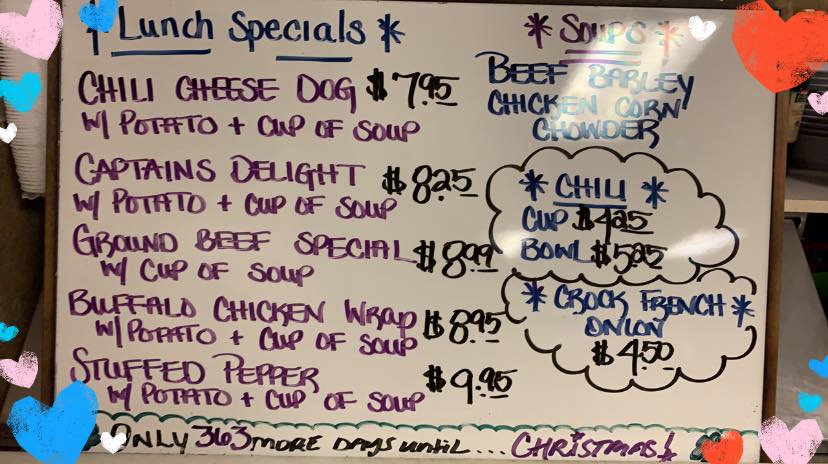 * Lunch Specials *
CHILI CHEESE DOG $7.95
W/ POTATO + CUP OF SOUP
CAPTAINS DELIGHT $8.25
W/ POTATO + CUP OF SOUP
GROUND BEEF SPECIAL $8.99
W/ CUP OF SOUP
BUFFALO CHICKEN Wrap $8.95
W/ POTATO + CUP OF SOUP
STUFFED PEPPER $9.95
W/ POTATO + CUP OF SOUP
* SOUPS *
BEEF BARLEY
CHICKEN CORN
CHOWDER
* CHILI *
CUP $4.25
BOWL $5.25
* CROCK FRENCH *
ONION
$4.50
ONLY 363 MORE DAYS until... CHRISTMAS!